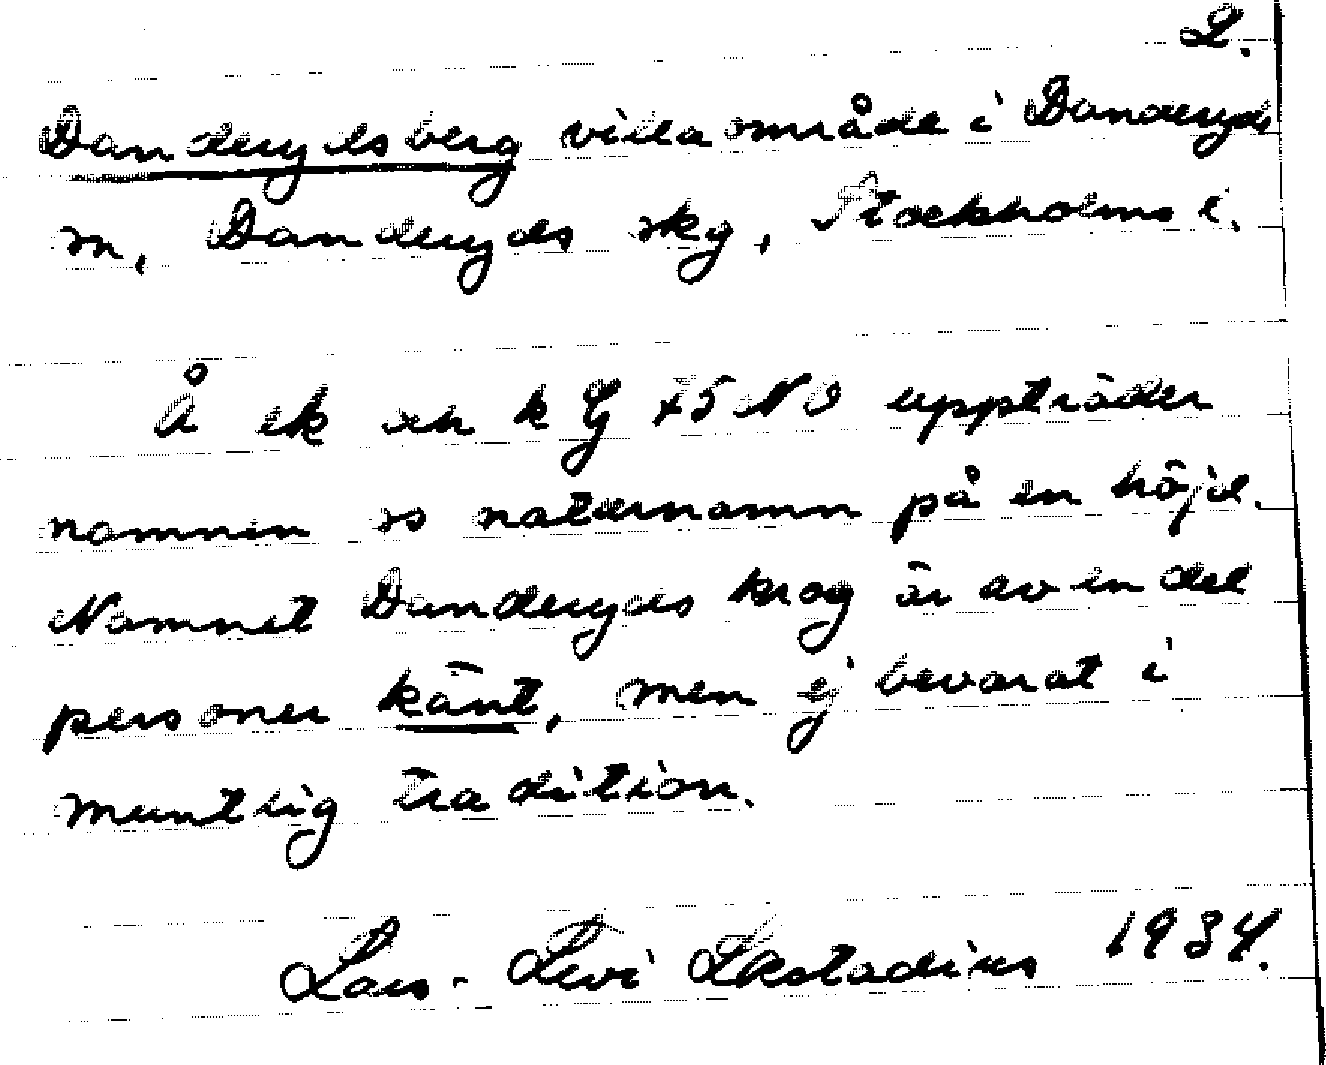 2.
Danderydsberg villaområde i Danderyds
sn, Danderyds skg, Stockholms l.
Å ek och k G 45 NO uppträder
namnen ss naturnamn på en höjd.
Namnet Danderyds krog är av en del
personer känt, men ej bevarat i
muntlig tradition.
Lars-Levi Læstadius 1934.